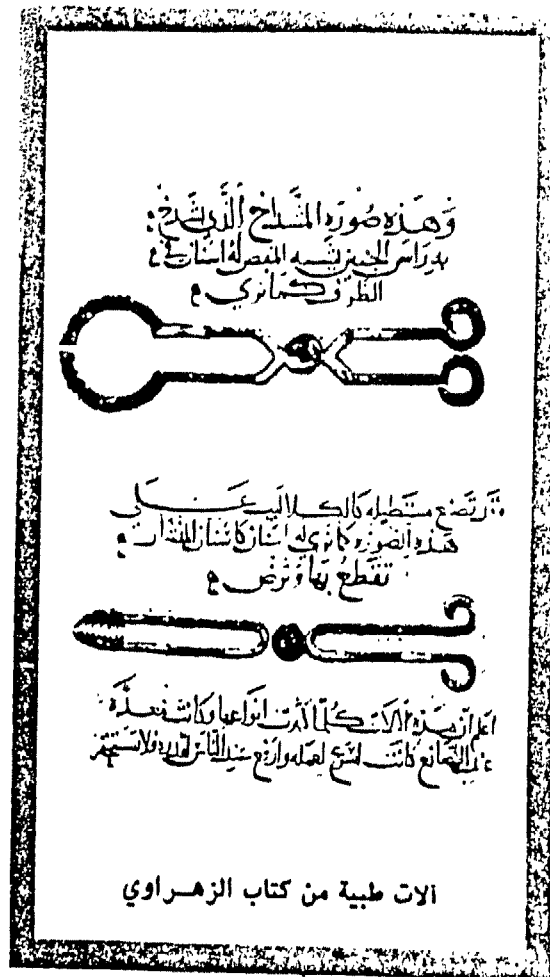 وهذه صورة المشداخ الذي يشدخ
به راس الجنين يشبه المقص له اسنان في
الطرف كما ترى
وقد يصنع مستطيله كالكلاليب على
هذه الصورة كما ترى له اسنان كاسنان المنشار
تقطع بها وترض
اعلم ان هذه الالات كلما كثرت انواعها وكانت معدة
عند الصانع كانت اسرع لعمله وارفع عند الناس لقدره فلا تستحقر
آلات طبية من كتاب الزهراوي